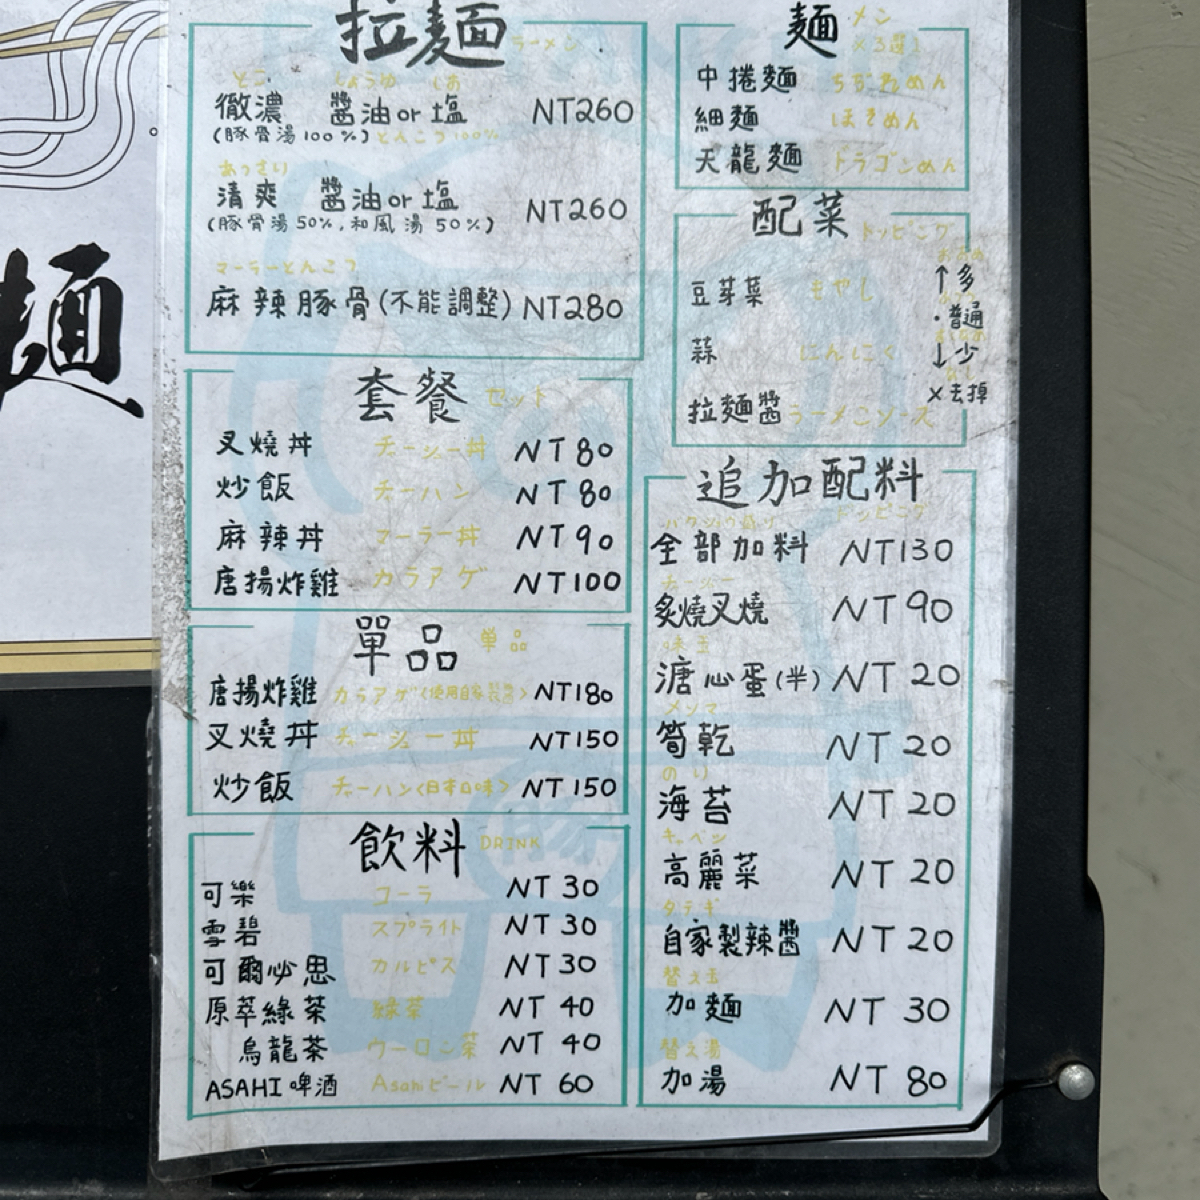 麺
拉麵 ラーメン
とこ しょうゆ しお
徹濃 醬油or塩 NT260
(豚骨湯100%) とんこつ100%
あっさり
清爽 醬油or塩 NT260
(豚骨湯50%,和風湯50%)
マーラーとんこつ
麻辣豚骨(不能調整) NT280
套餐 セット
叉燒丼 チャーシュー丼 NT80
炒飯 チャーハン NT80
麻辣丼 マーラー丼 NT90
唐揚炸雞 カラアゲ NT100
單品 単品
唐揚炸雞 カラアゲ(使用自家製醬) NT180
叉燒丼 チャーシュー丼 NT150
炒飯 チャーハン<日本口味> NT150
飲料 DRINK
可樂 コーラ NT30
雪碧 スプライト NT30
可爾必思 カルピス NT30
原萃綠茶 緑茶 NT40
烏龍茶 ウーロン茶 NT40
ASAHI啤酒 Asahiビール NT60
麵 メン
中捲麵 ちぢれめん
細麵 ほそめん
天龍麵 ドラゴンめん
配菜 トッピング
豆芽菜 もやし
蒜 にんにく
拉麵醬 ラーメンソース
↑多
・普通
↓少
×去掉
追加配料 トッピング
全部加料 NT130
チャーシュー
炙燒叉燒 NT90
味玉
溏心蛋(半) NT20
メンマ
筍乾 NT20
のり
海苔 NT20
キャベツ
高麗菜 NT20
自家製辣醬 NT20
替え玉
加麵 NT30
替え湯
加湯 NT80